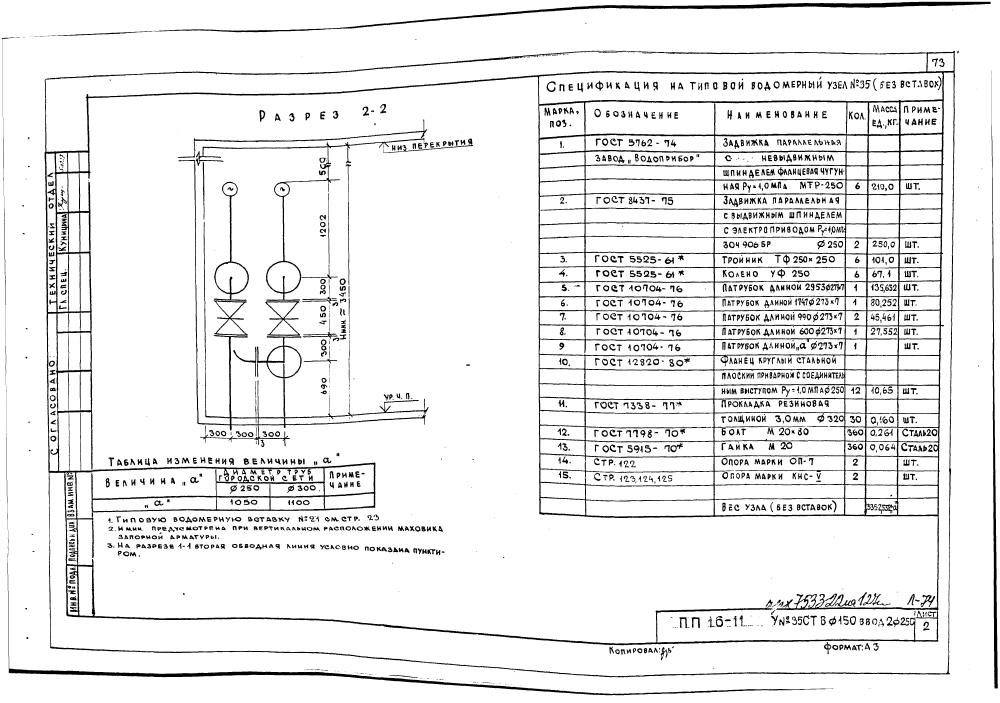 73
Разрез 2-2
низ перекрытия
500
1202
300
450
3
3
300
690
Hмин = 3450
ур. ч. п.
300 300 300
3
Таблица изменения величины „а"
Величина „а"
Диаметр труб городской сети
Приме-
чание
Ø 250 Ø 300
„а" 1050 1100
1. Типовую водомерную вставку №21 см. стр. 23
2. H мин. предусмотрена при вертикальном расположении маховика
запорной арматуры.
3. На разрезе 1-1 вторая обводная линия условно показана пункти-
ром.
Спецификация на типовой водомерный узел №35 (без вставок)
Марка, поз. Обозначение Наименование Кол. Масса ед., кг. Приме-
чание
1. ГОСТ 5762-74 Задвижка параллельная
завод „Водоприбор" с невыдвижным
шпинделем фланцевая чугун-
ная Ру=1,0 мпа МТР-250 6 210,0 шт.
2. ГОСТ 8437-75 Задвижка параллельная
с выдвижным шпинделем
с электроприводом Ру=1,0мпа
30ч 906 бр Ø 250 2 250,0 шт.
3. ГОСТ 5525-61* Тройник ТФ 250×250 6 101,0 шт.
4. ГОСТ 5525-61* Колено УФ 250 6 67.1 шт.
5. ГОСТ 10704-76 Патрубок длиной 2953Ø273×7 1 135,632 шт.
6. ГОСТ 10704-76 Патрубок длиной 1747Ø273×7 1 80,252 шт.
7. ГОСТ 10704-76 Патрубок длиной 990Ø273×7 2 45,461 шт.
8. ГОСТ 10704-76 Патрубок длиной 600Ø273×7 1 27,552 шт.
9 ГОСТ 10704-76 Патрубок длиной „а" Ø273×7 1 шт.
10. ГОСТ 12820-80* Фланец круглый стальной
плоский приварной с соединитель
ным выступом Ру=1,0 мпа Ø250 12 10,65 шт.
11. ГОСТ 7338-77* Прокладка резиновая
толщиной 3,0мм Ø320 30 0,160 шт.
12. ГОСТ 7798-70* Болт М 20×80 360 0,261 Сталь20
13. ГОСТ 5915-70* Гайка М 20 360 0,064 Сталь20
14. стр. 122 Опора марки ОП-7 2 шт.
15. стр. 123,124,125 Опора марки КНС-V 2 шт.
Вес узла (без вставок)
Технический отдел
Гл. спец. Куницина
Согласовано:
Инв.№ подл. Подпись и дата Взам.инв.№
Л-74
ПП 16-11 У№35СТВ Ø150 ввод 2Ø250
Лист
2
Копировал:
Формат: А3